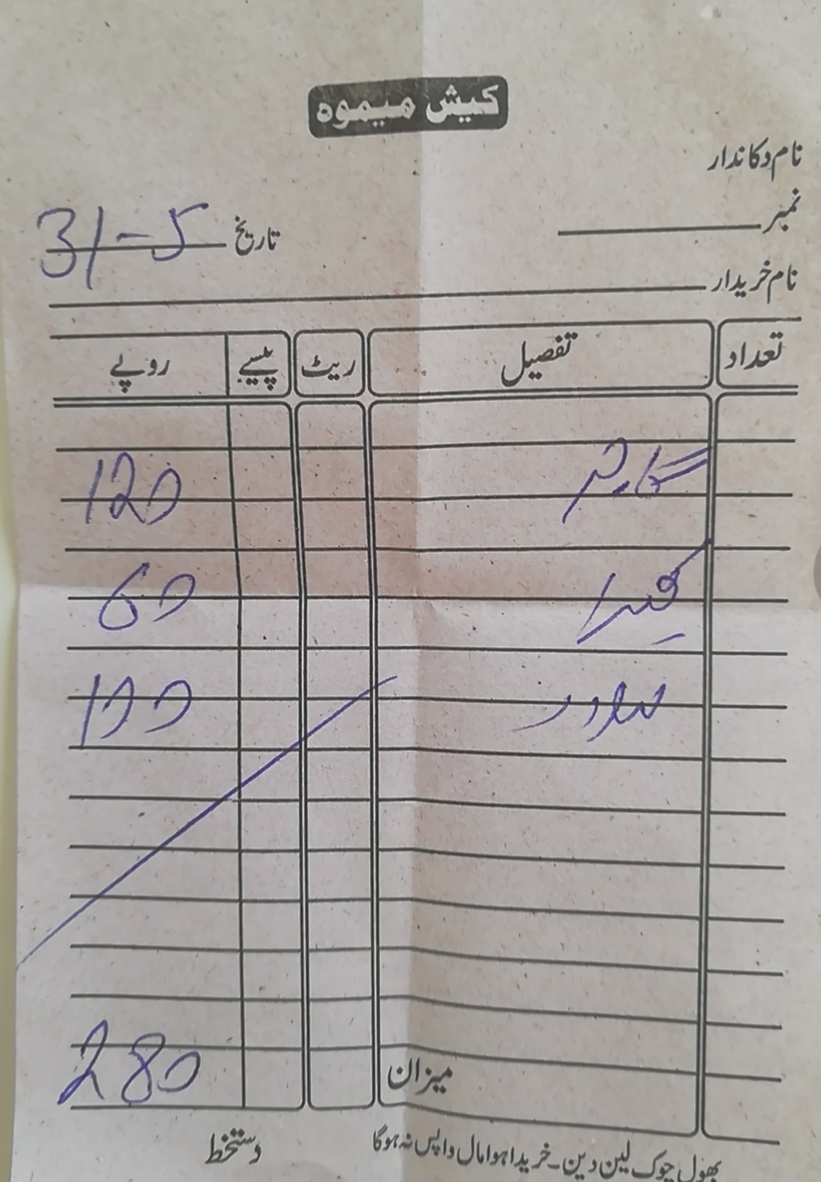 کیش میموہ
نام دکاندار
نمبر
تاریخ 31-5
نام خریدار
تعداد تفصیل ریٹ پیسے روپے
گاجر 120
کھیرا 60
100
میزان 280
بھول چوک لین دین۔ خریدا ہوا مال واپس نہ ہوگا
دستخط